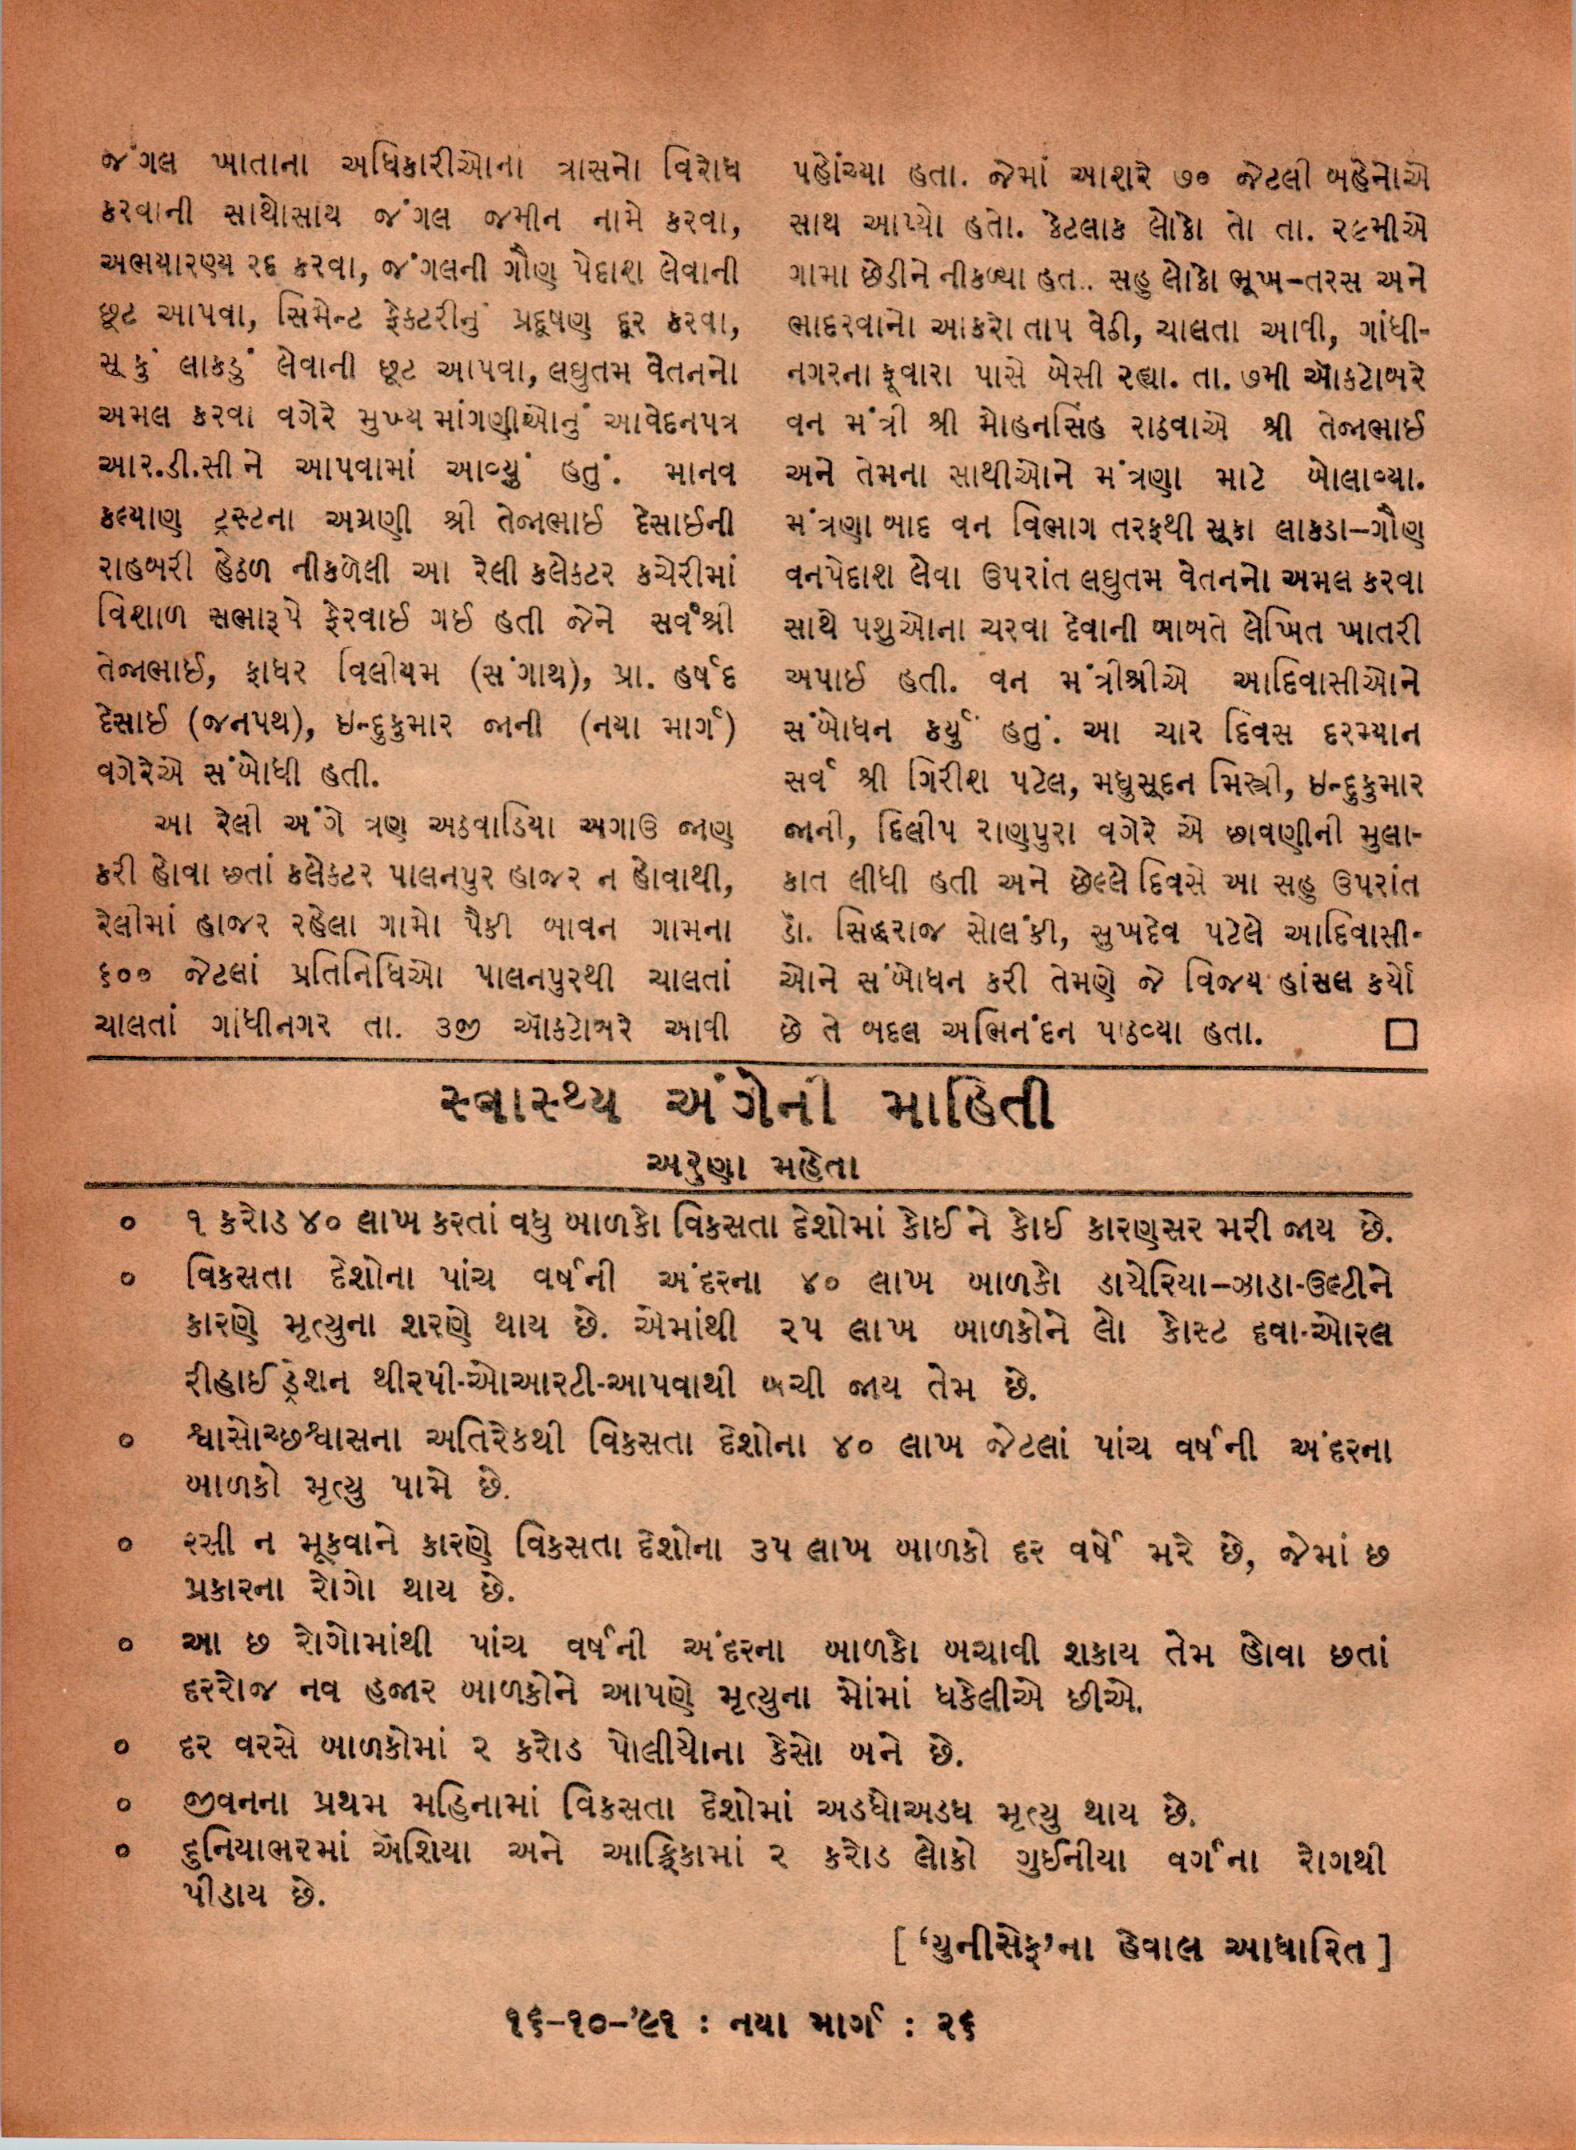 જંગલ ખાતાના અધિકારીઓના ત્રાસનો વિરોધ
કરવાની સાથોસાથ જંગલ જમીન નામે કરવા,
અભયારણ્ય રદ કરવા, જંગલની ગૌણ પેદાશ લેવાની
છૂટ આપવા, સિમેન્ટ ફેક્ટરીનું પ્રદૂષણ દૂર કરવા,
સૂકું લાકડું લેવાની છૂટ આપવા, લઘુતમ વેતનનો
અમલ કરવા વગેરે મુખ્ય માંગણીઓનું આવેદનપત્ર
આર.ડી.સી ને આપવામાં આવ્યું હતું. માનવ
કલ્યાણ ટ્રસ્ટના અગ્રણી શ્રી તેજાભાઈ દેસાઈની
રાહબરી હેઠળ નીકળેલી આ રેલી કલેકટર કચેરીમાં
વિશાળ સભારૂપે ફેરવાઈ ગઈ હતી જેને સર્વશ્રી
તેજાભાઈ, ફાધર વિલીયમ (સંગાથ), પ્રા. હર્ષદ
દેસાઈ (જનપથ), ઇન્દુકુમાર જાની (નયા માર્ગ)
વગેરેએ સંબોધી હતી.
આ રેલી અંગે ત્રણ અઠવાડિયા અગાઉ જાણ
કરી હોવા છતાં કલેકટર પાલનપુર હાજર ન હોવાથી,
રેલીમાં હાજર રહેલા ગામો પૈકી બાવન ગામના
૬૦૦ જેટલાં પ્રતિનિધિઓ પાલનપુરથી ચાલતાં
ચાલતાં ગાંધીનગર તા. ૩જી ઑક્ટોબરે આવી
પહોંચ્યા હતા. જેમાં આશરે ૭૦ જેટલી બહેનોએ
સાથ આપ્યો હતો. કેટલાક લોકો તો તા. ૨૯મીએ
ગામા છેડીને નીકળ્યા હત.. સહુ લોકો ભૂખ-તરસ અને
ભાદરવાનો આકરો તાપ વેઠી, ચાલતા આવી, ગાંધી-
નગરના ફૂવારા પાસે બેસી રહ્યા. તા. ૭મી ઑકટોબરે
વન મંત્રી શ્રી મોહનસિંહ રાઠવાએ શ્રી તેજાભાઈ
અને તેમના સાથીઓને મંત્રણા માટે બોલાવ્યા.
મંત્રણા બાદ વન વિભાગ તરફથી સૂકા લાકડા-ગૌણ
વનપેદાશ લેવા ઉપરાંત લઘુતમ વેતનનો અમલ કરવા
સાથે પશુઓના ચરવા દેવાની બાબતે લેખિત ખાતરી
અપાઈ હતી. વન મંત્રીશ્રીએ આદિવાસીઓને
સંબોધન કર્યું હતું. આ ચાર દિવસ દરમ્યાન
સર્વ શ્રી ગિરીશ પટેલ, મધુસૂદન મિસ્ત્રી, ઇન્દુકુમાર
જાની, દિલીપ રાણપુરા વગેરે એ છાવણીની મુલા-
કાત લીધી હતી અને છેલ્લે દિવસે આ સહુ ઉપરાંત
ડૉ. સિદ્ધરાજ સોલંકી, સુખદેવ પટેલે આદિવાસી-
ઓને સંબોધન કરી તેમણે જે વિજય હાંસલ કર્યો
છે તે બદલ અભિનંદન પાઠવ્યા હતા. □
સ્વાસ્થ્ય અંગેની માહિતી
અરુણા મહેતા
૦ ૧ કરોડ ૪૦ લાખ કરતાં વધુ બાળકો વિકસતા દેશોમાં કોઈ ને કોઈ કારણસર મરી જાય છે.
૦ વિકસતા દેશોના પાંચ વર્ષની અંદરના ૪૦ લાખ બાળકો ડાયેરિયા-ઝાડા-ઉલ્ટીને
કારણે મૃત્યુના શરણે થાય છે. એમાંથી ૨૫ લાખ બાળકોને લો કોસ્ટ દવા-ઓરલ
રીહાઈડ્રેશન થીરપી-ઓઆરટી-આપવાથી બચી જાય તેમ છે.
૦ શ્વાસોચ્છશ્વાસના અતિરેકથી વિકસતા દેશોના ૪૦ લાખ જેટલાં પાંચ વર્ષની અંદરના
બાળકો મૃત્યુ પામે છે.
૦ રસી ન મૂકવાને કારણે વિકસતા દેશોના ૩૫ લાખ બાળકો દર વર્ષે મરે છે, જેમાં છ
પ્રકારના રોગો થાય છે.
૦ આ છ રોગોમાંથી પાંચ વર્ષની અંદરના બાળકો બચાવી શકાય તેમ હોવા છતાં
દરરોજ નવ હજાર બાળકોને આપણે મૃત્યુના મોંમાં ધકેલીએ છીએ.
૦ દર વરસે બાળકોમાં ૨ કરોડ પોલીયોના કેસો બને છે.
૦ જીવનના પ્રથમ મહિનામાં વિકસતા દેશોમાં અડધોઅડધ મૃત્યુ થાય છે.
૦ દુનિયાભરમાં એશિયા અને આફ્રિકામાં ૨ કરોડ લોકો ગુઈનીયા વર્ગના રોગથી
પીડાય છે.
[ ‘યુનીસેફ’ના હેવાલ આધારિત ]
૧૬-૧૦-’૯૧ : નયા માર્ગ : ૨૬